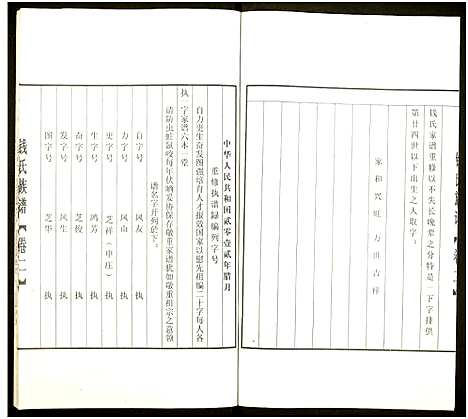 钱氏家谱重修以不失长晚辈之分特是一下字排供
第廿四世以下出生之人取字。
家和兴旺 万世吉祥
中华人民共和国贰零壹贰年腊月
重修执谱录编列字号
自力更生奋发图强培育人才报效国家以慰先祖编二十字每人各
执一字家谱六本一堂
请防虫蛀鼠咬每年伏晒妥协保存敬重家谱犹如敬重祖宗之意领
谱名字开列於下。
自字号 风友 执
力字号 风山 执
更字号 芝祥(申庄) 执
生字号 鸿芳 执
奋字号 芝俊 执
发字号 风生 执
图字号 芝华 执
钱氏族谱【卷二】